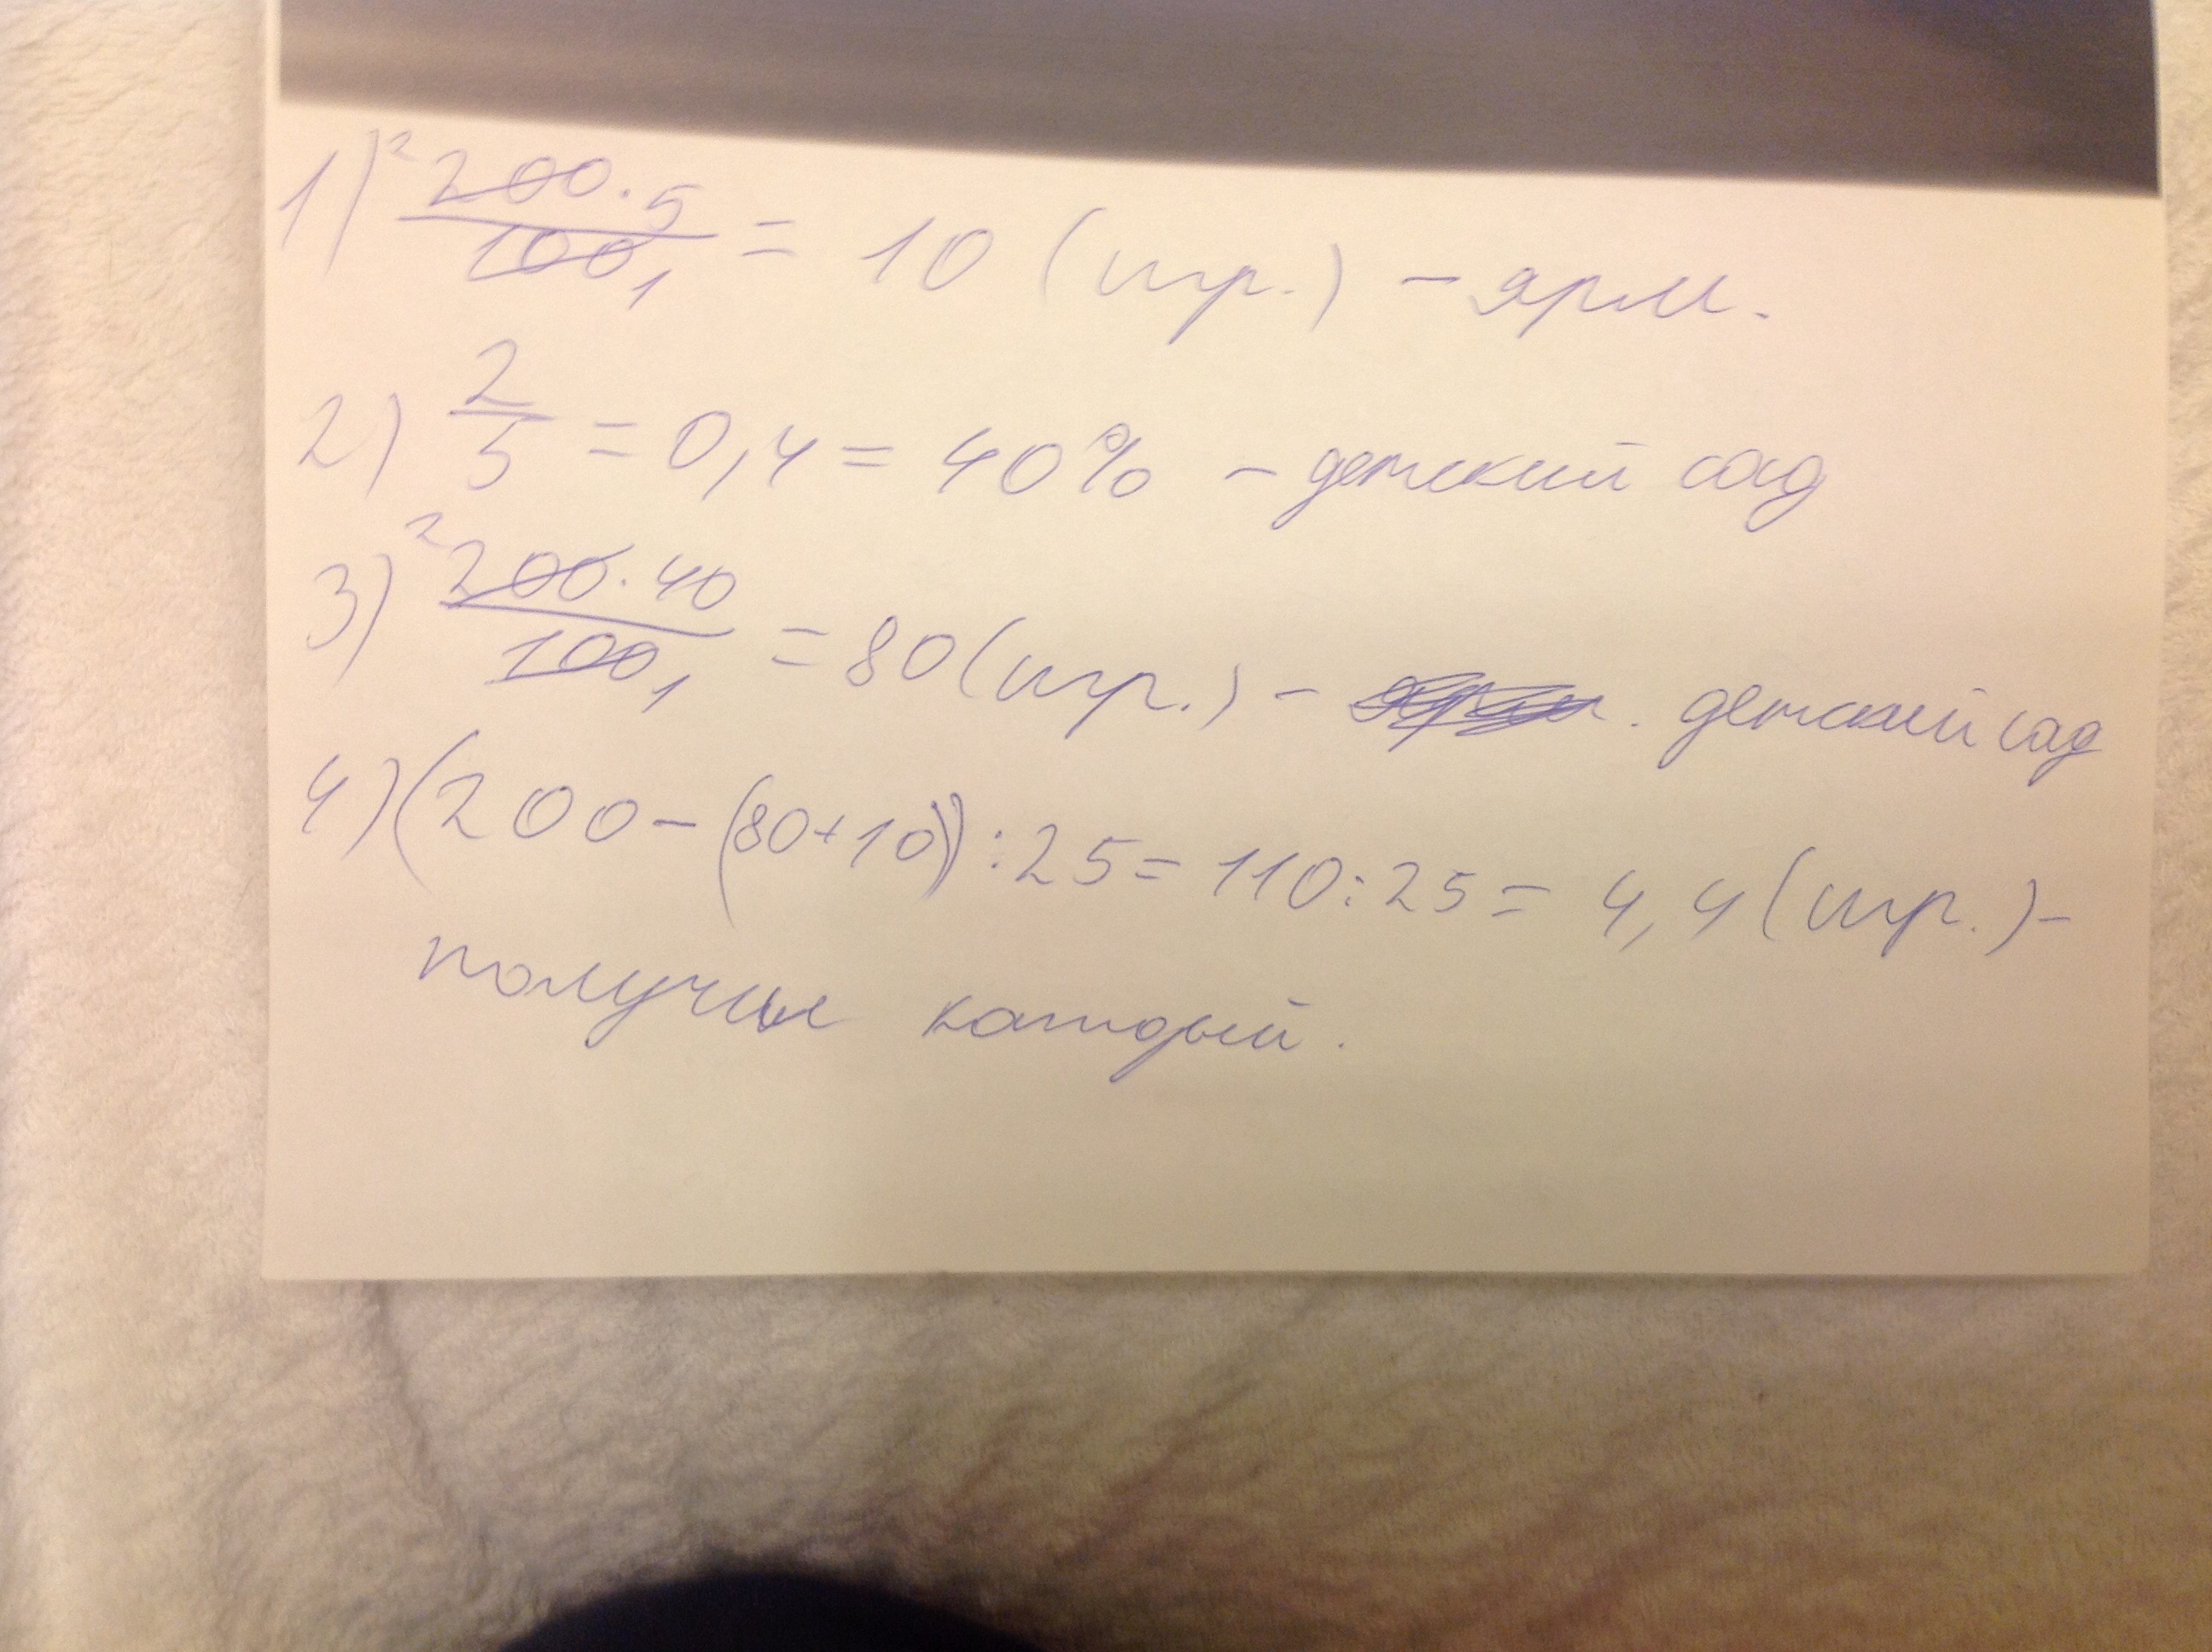 1) ²200·5/100₁ = 10 (игр.) – ярм.
2) 2/5 = 0,4 = 40% – детский сад
3) ²200·40/100₁ = 80 (игр.) – детский сад
4) (200 – (80+10)) : 25 = 110 : 25 = 4,4 (игр.) –
получил каждый.